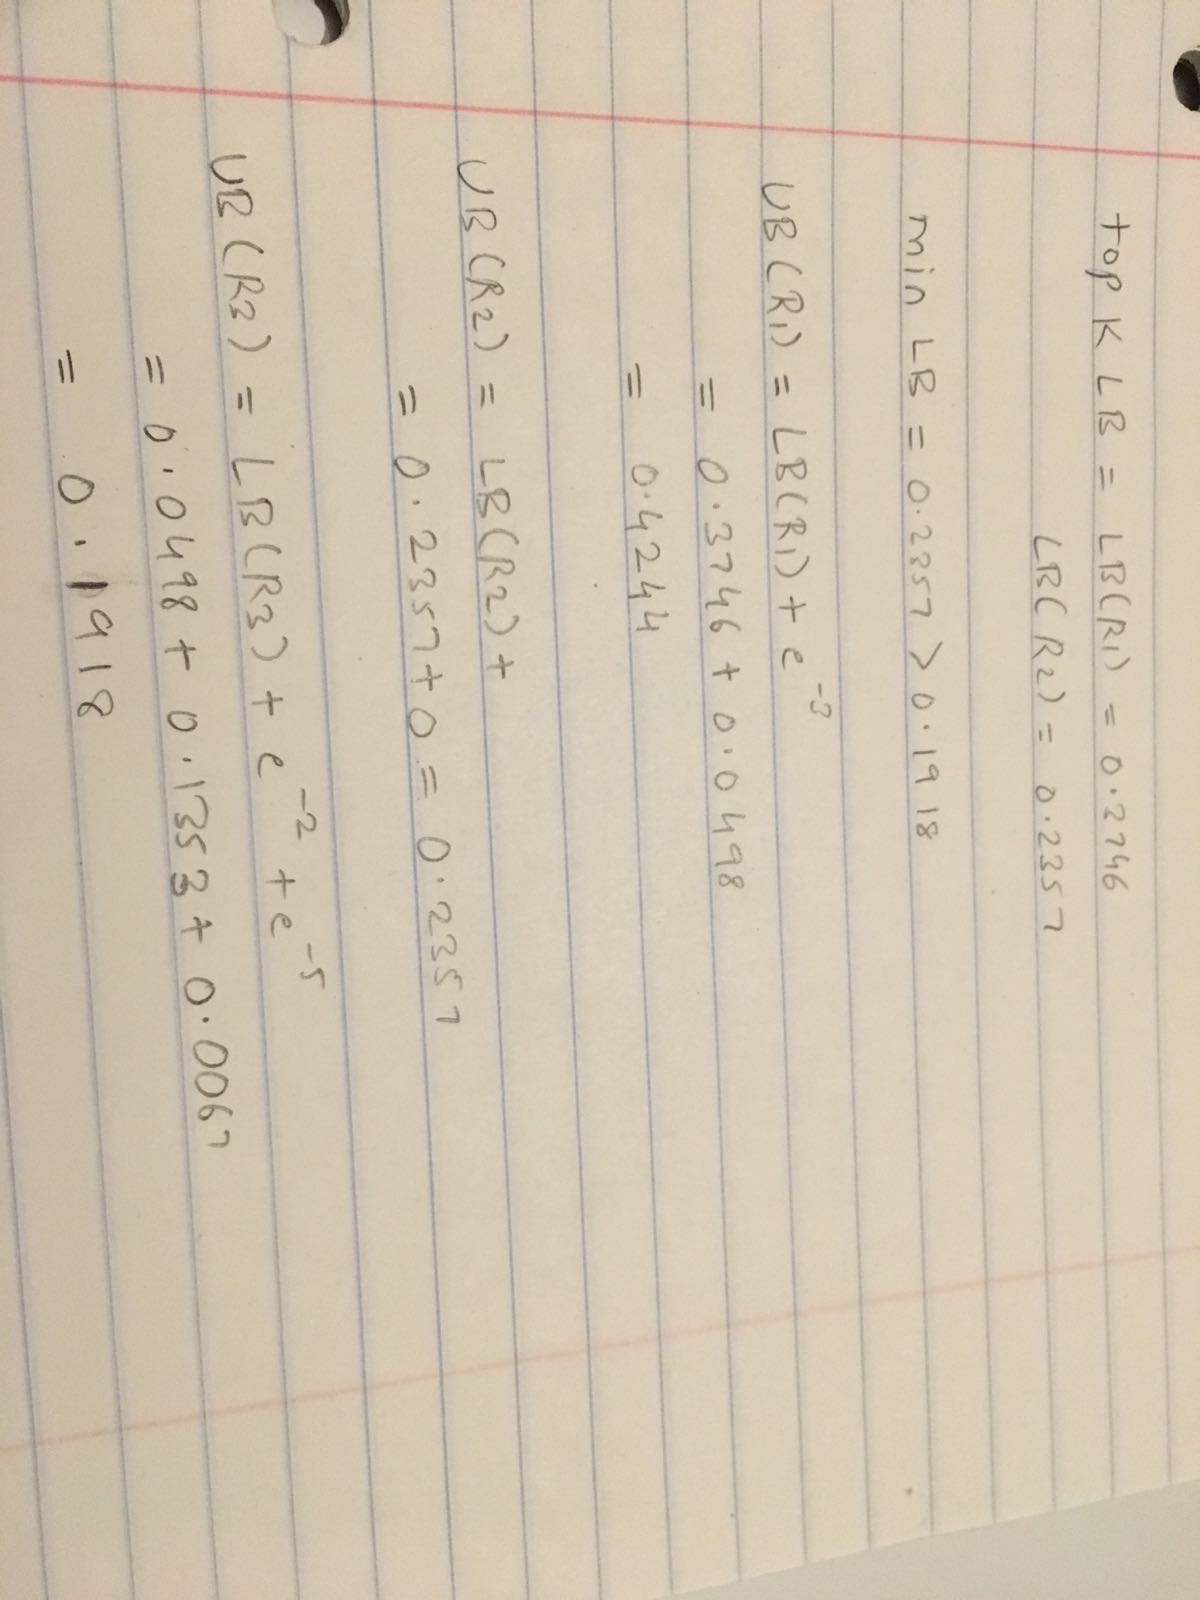 top K LB = LB(R1) = 0.3746
LB(R2) = 0.2357
min LB = 0.2357 > 0.1918
UB(R1) = LB(R1) + e^-3
= 0.3746 + 0.0498
= 0.4244
UB(R2) = LB(R2) +
= 0.2357 + 0 = 0.2357
UB(R3) = LB(R3) + e^-2 + e^-5
= 0.0498 + 0.1353 + 0.0067
= 0.1918